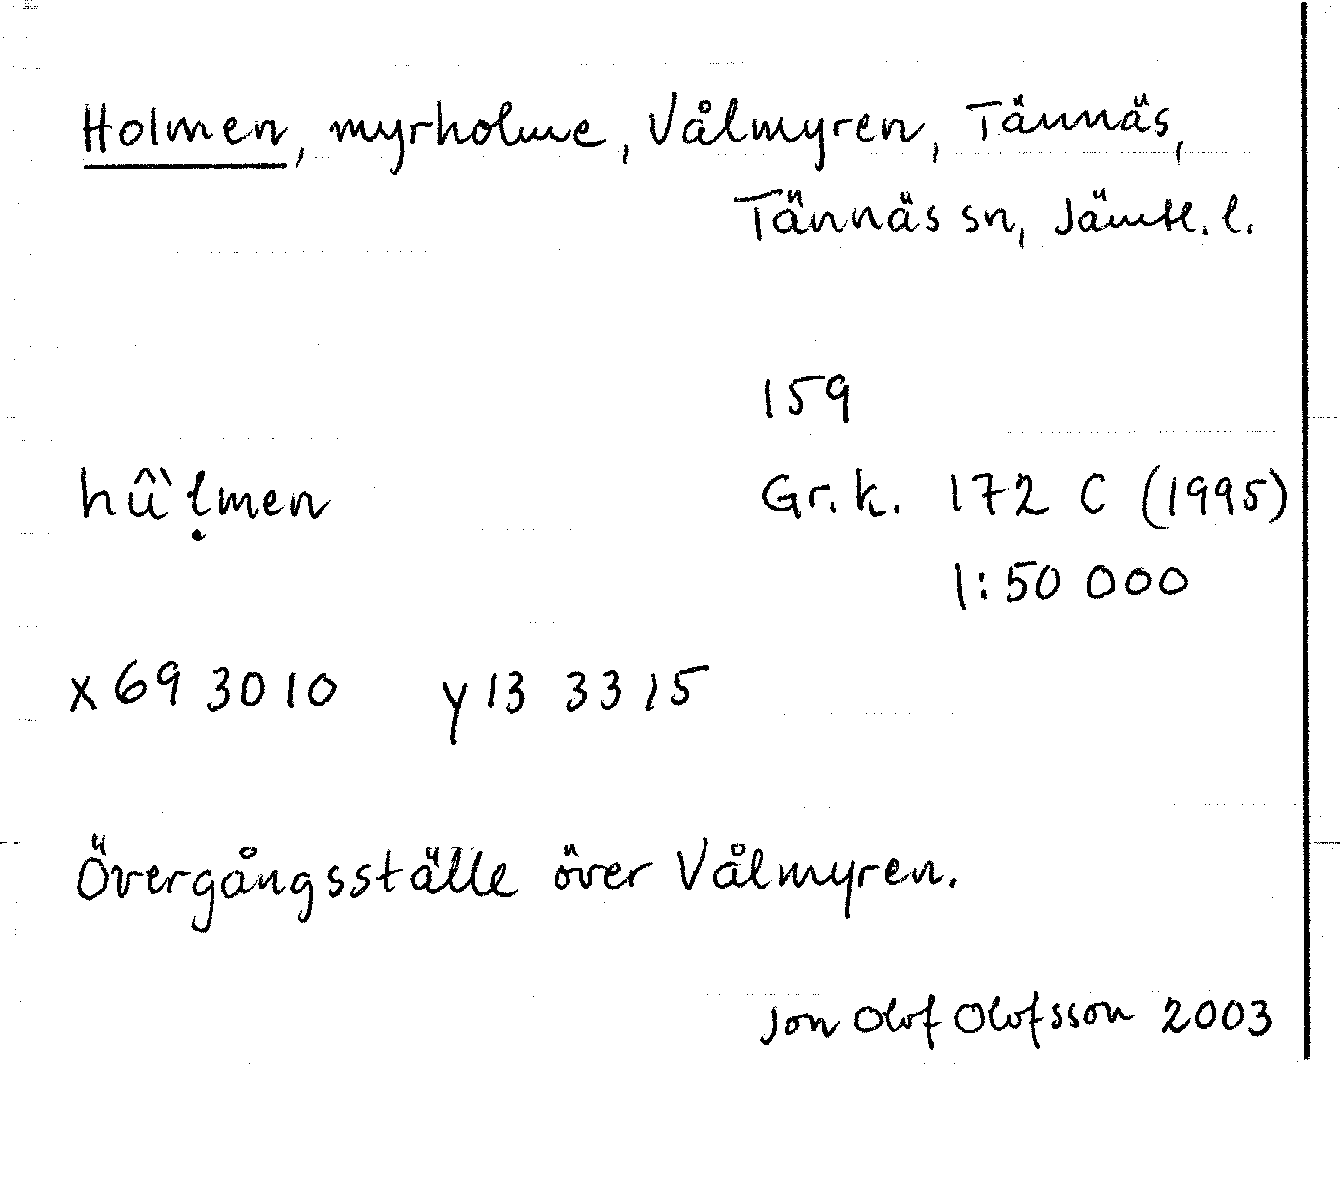 Holmen, myrholme, Vålmyren, Tännäs,
Tännäs sn, Jämtl. l.
159
hû`ḷmen
Gr.k. 172 C (1995)
1:50 000
x 69 3010 y 13 3315
Övergångsställe över Vålmyren.
Jon Olof Olofsson 2003